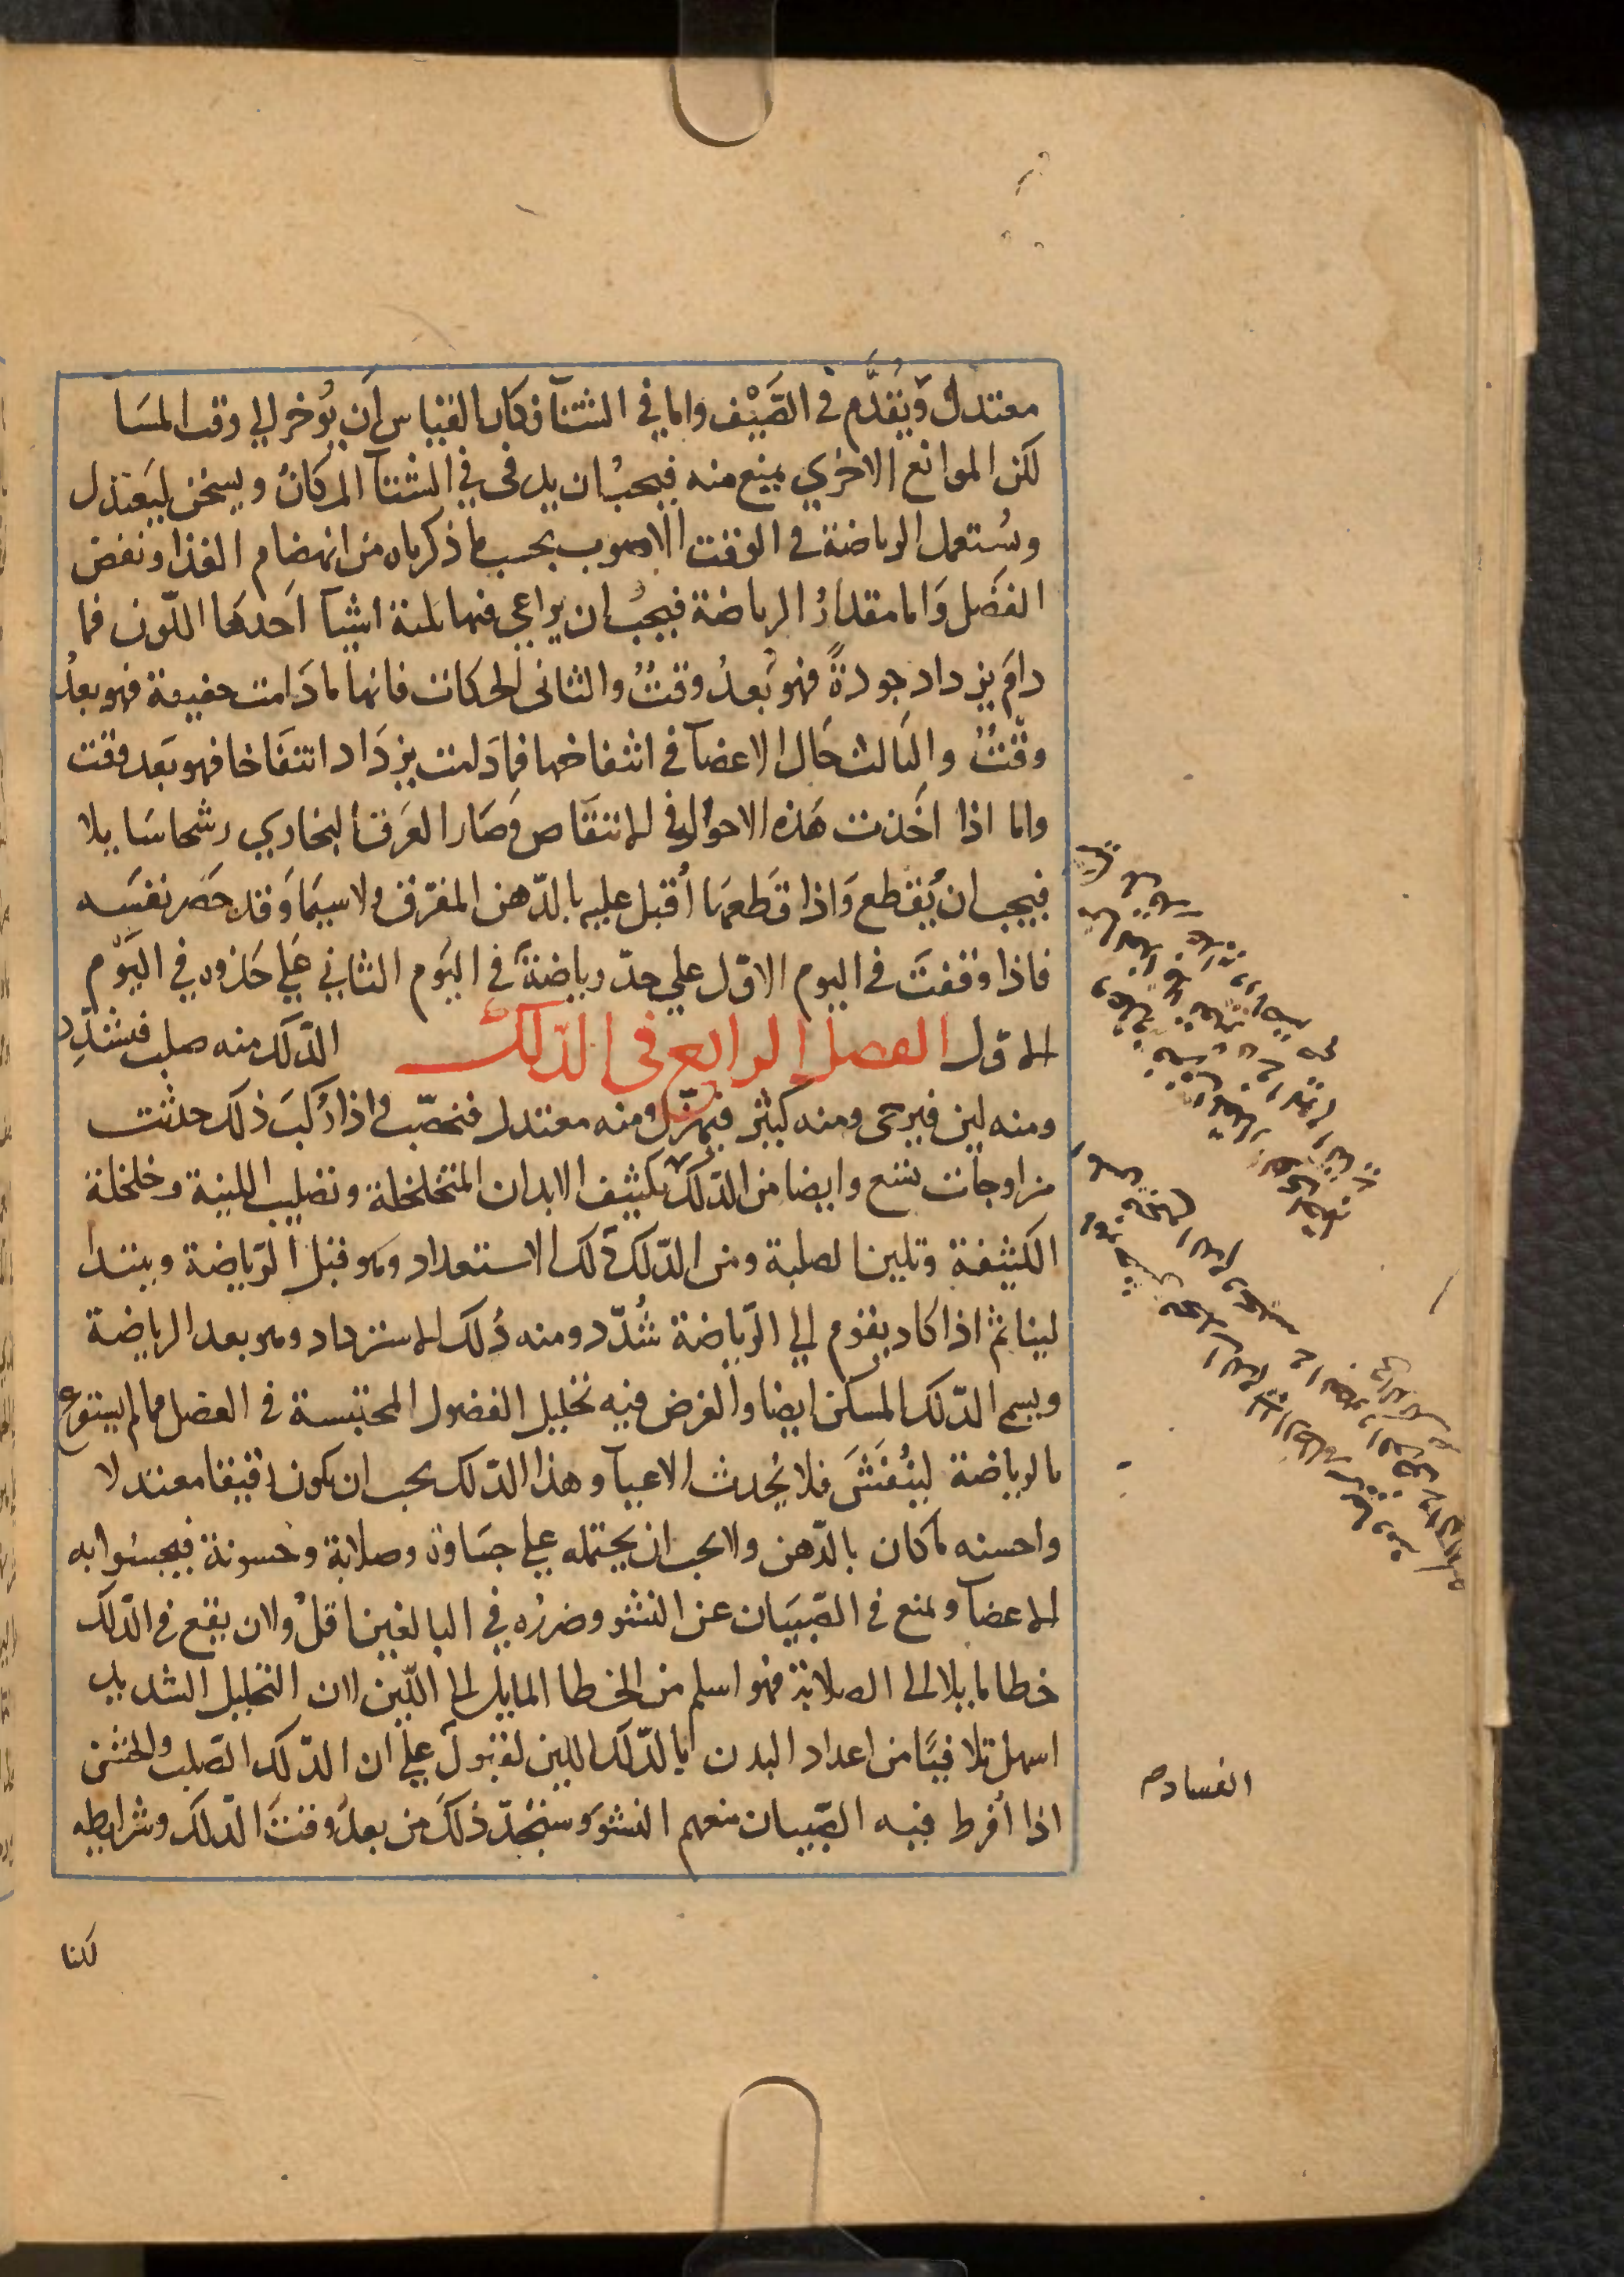 معتدل ويُقدَّم في الصَّيْف واما في الشتآ فكان القياس اَن يُوخر الي وقت المسَا
لكن الموانع الاخري يمنع منه فيجبُ ان يدفى في الشتآ المكانُ ويسخن ليَعتدل
وسُتعمل الرياضة في الوقت الاصوب بحسب ما ذكرناه من انهضام الغذا ونفض
الفضَل وَاما مقدارُ الرياضة فيجبُ ان يراعي فيها ثلثة اشيآ اَحدهَا اللّون فما
دامَ يزداد جودةً فهو بَعدُ وقتٌ والثاني الحركات فانها ما دَامت خفيفة فهو بعدُ
وقْتٌ والثالث حَال الاعضآ في انتفاخها فما دَامت يزدَاد انتفَاخا فهو بعَد وقت
واما اذا اخَذت هَذه الاحوال في الانتقَاص وَصَار العَرق البخاري رشحا سَايلا
فيجب ان يُقطع وَاذا قطعَهَا اُقبل عليه بالدّهن المغرّق ولا سيمَا وَقد حَصَر نفسَه
فاذا وقفتَ في اليوم الاوّل علي حدّ رياضةً في اليَوم الثاني عَلي حَذوه في اليَوم
الاول الفصل الرابع في الدّلك الدّلك منه صلب فيشدِّد
ومنه لين فيرخى ومنه كثير فيهزل ومنه معتدل فنخصّب واذا رُكبَ ذلك حدثت
مزاوجات تسع وايضا من الدّلك تكثيف الابدان المتخلخلة وتصليب اللينة وخلخلة
الكثيفة وتليين الصلبة ومن الدّلك دَلك الاستعداد وهو قبل الرّياضة ويبتدا
لينا ثم اذا كاد يقوم الي الرّياضة شُدّد ومنه دُلك الاستزداد وهو بعد الرياضة
ويسمي الدّلك المسكن ايضا والغرض فيه تحليل الفضول المحتبسة في العضل مما لم يستفرغ
بالرياضة ليُنفَشَ فلا يُحدث الاعيآ وهذا الدّلك يجب ان يكون رقيقا معتدلا
واحسنه ما كان بالدّهن ولا يجب ان يختمه علي جسَاوة وصلابة وخسونة فيجسُوا به
الاعضآ ويمنع في الصّبيَان عن النشو وضررُه في البالغين اقلُ ولان يقع في الدّلك
خطا مايلا الى الصلابة فهو اسلم من الخطا المايل الى اللّين لان التحليل الشديد
اسهل تلافيًا من اعداد البدن بالدّلك اللين لقبول علي ان الدّلك الصّلب والخشن
اذا اُفرط فيه الصّبيان منعهم النشوَ وستجّد ذلكَ من بعدُ وقتَ الدّلك وشرايطه
الفساد صح
لكنا